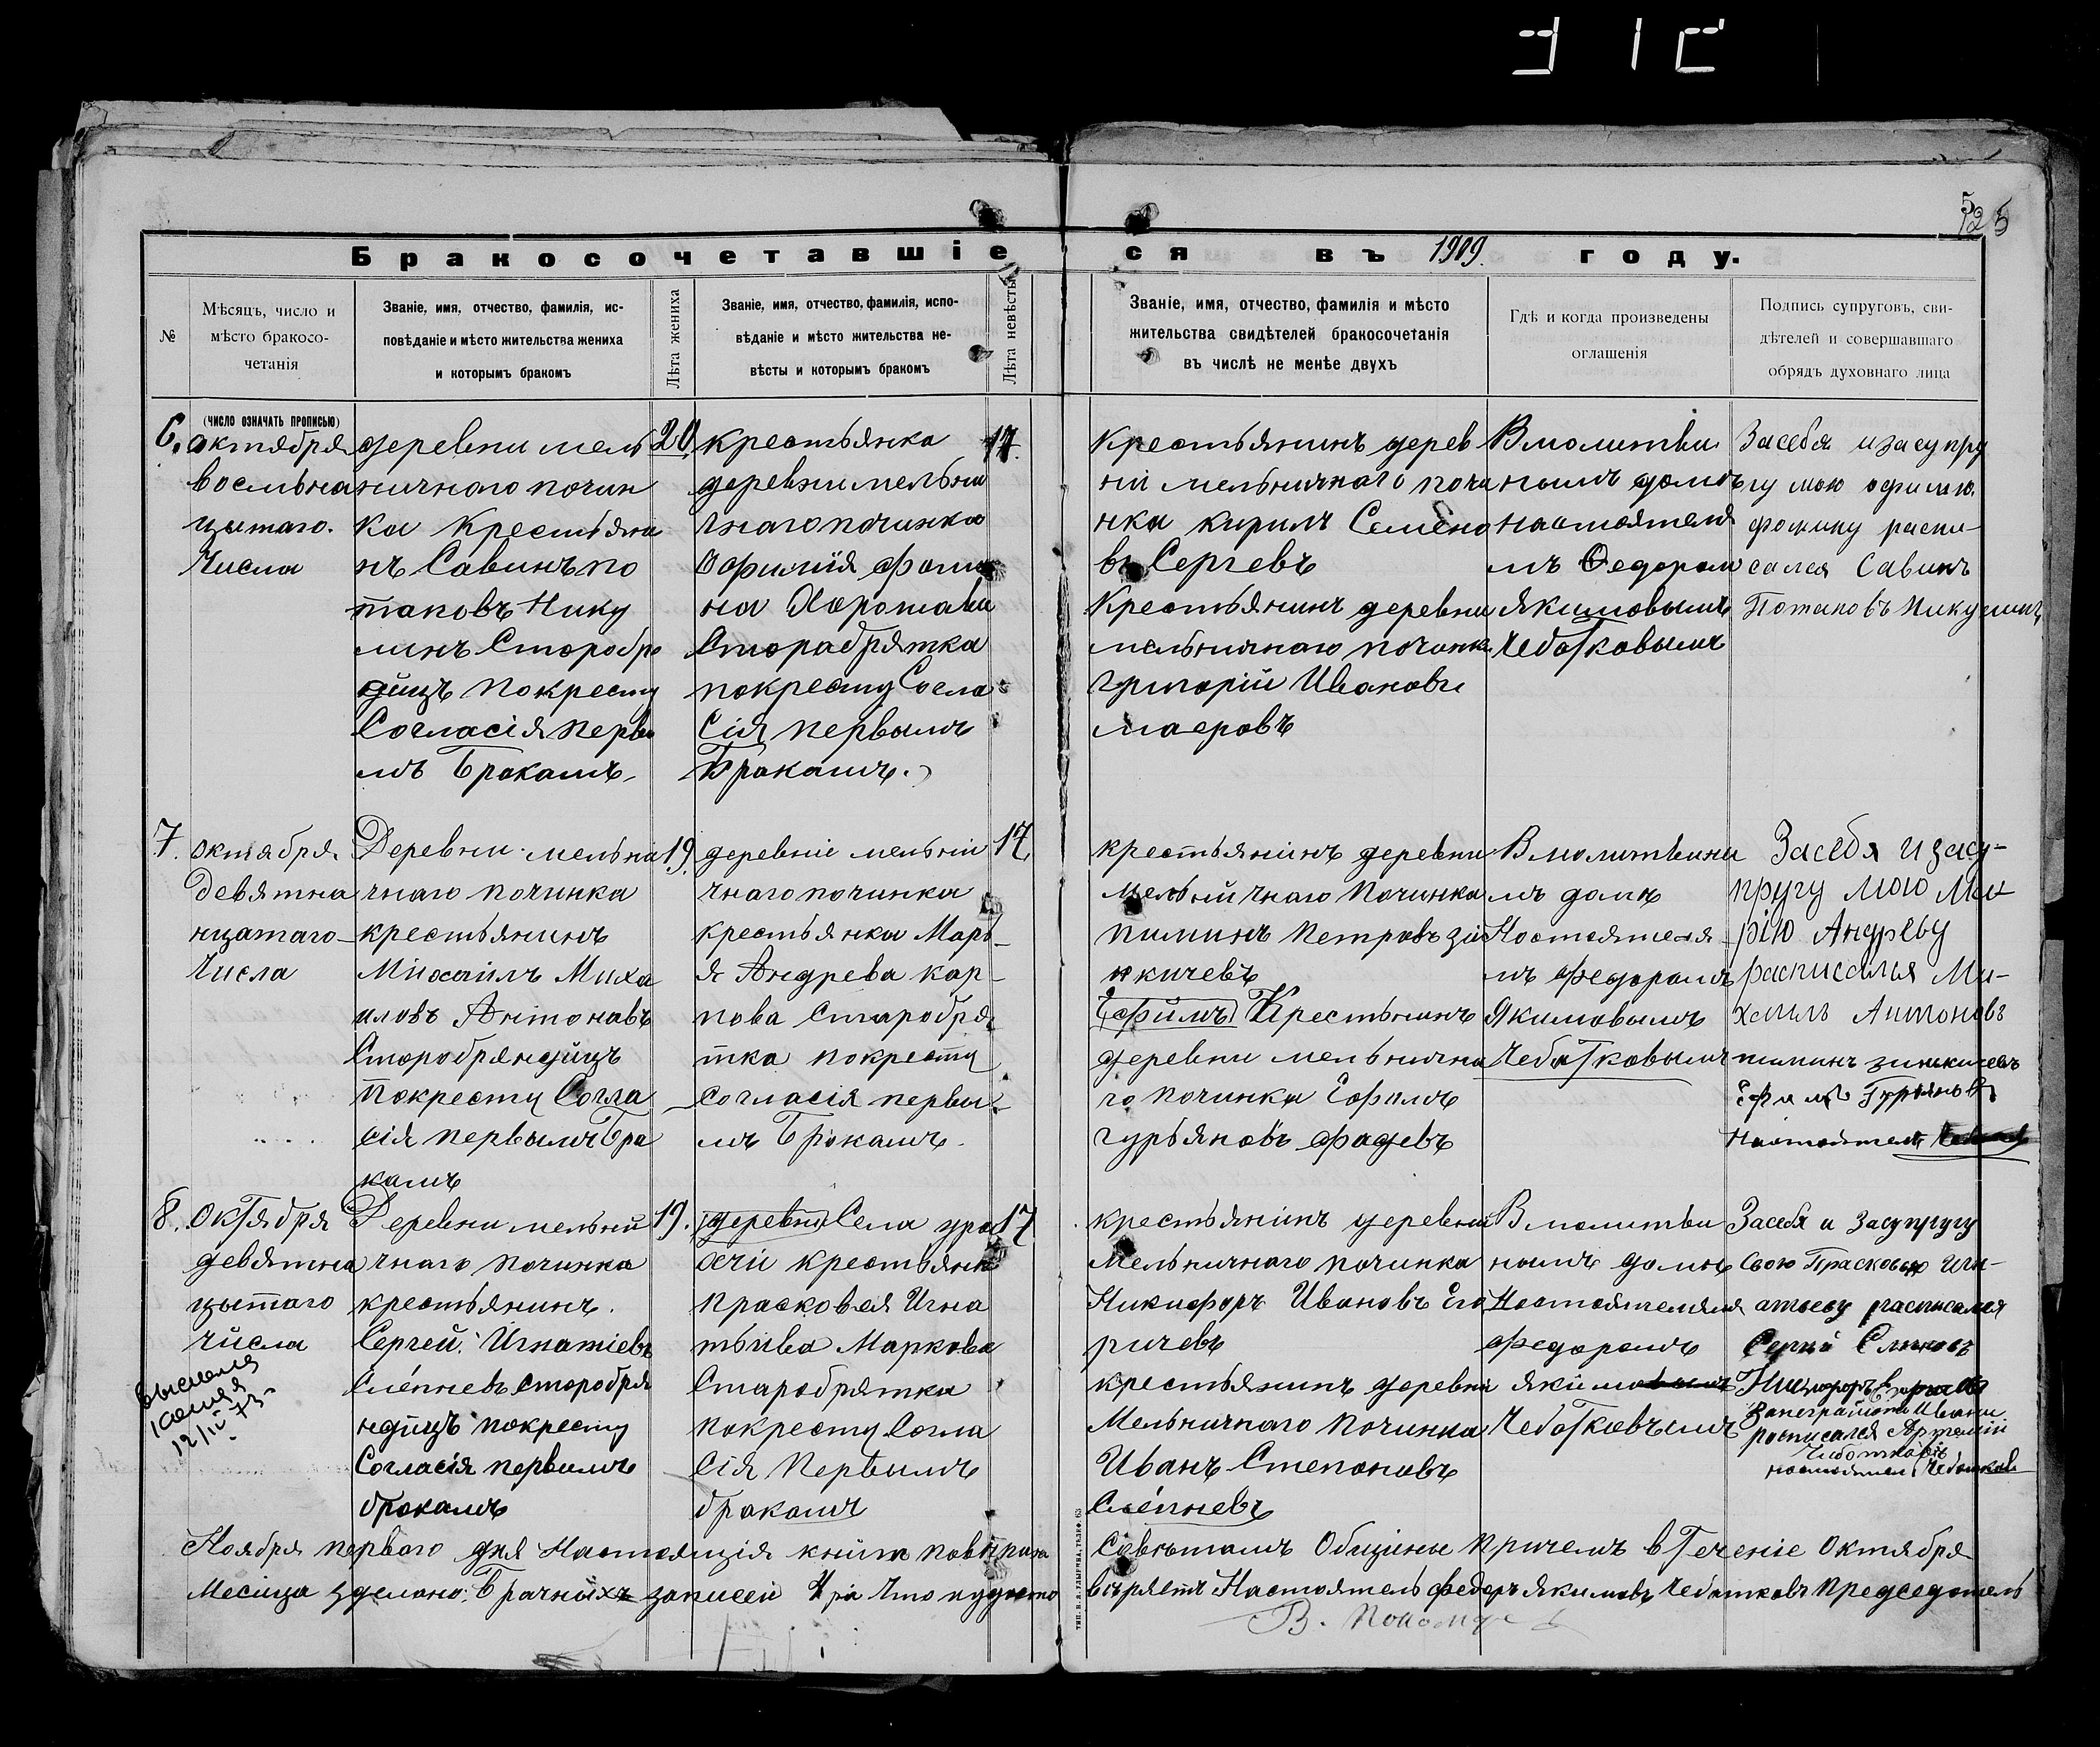 525
Бракосочетавшіеся въ 1909 году.
№
Мѣсяцъ, число и
мѣсто бракосо-
четанія
Званіе, имя, отчество, фамилія, ис-
повѣданіе и мѣсто жительства жениха
и которымъ бракомъ
Лѣта жениха
Званіе, имя, отчество, фамилія, испо-
вѣданіе и мѣсто жительства не-
вѣсты и которымъ бракомъ
Лѣта невѣсты
Званіе, имя, отчество, фамилія и мѣсто
жительства свидѣтелей бракосочетанія
въ числѣ не менѣе двухъ
Гдѣ и когда произведены
оглашенія
Подпись супруговъ, сви-
дѣтелей и совершавшаго
обрядъ духовнаго лица
(число означать прописью)
6.
октября
восьмна
цытаго.
Числа
деревни мель
ничнаго почин
ка Крестьяни
нъ Савинъ по
таповъ Нику
линъ Старобря
дйицъ покресту
Согласія первы
мъ Бракамъ.
20
крестьянка
деревни мельни
чнаго починка
Офимія фоми
на
Старабрятка
покресту Согла
сія первымъ
Бракамъ.
17.
крестьянинъ дерев
ни мельничнаго почи
нка кирилъ Семено
въ Сергевъ
Крестьянинъ деревни
мельничнаго починк
григорій Ивановъ
маеровъ
Вмолитви
нымъ домѣ
настоятеля
мъ Федорам
якимовымъ
Чеботковымъ
Засебя изасупру
гу мою офимю
фомину распи-
сался Савинъ
Потаповъ Никулинъ
7.
октября
девятна
нцатаго
Числа
Деревни мельни
чнаго починка
крестьянинъ
Михаилъ Миха
иловъ Антонавъ
Старобряндйицъ
покресту Согла
сія первымъ Бра
камъ
19.
деревніе мельни
чнаго починка
крестьянка Марь-
я Андрева кар-
пова Старобря
тка покресту
Согласія первы-
мъ Бракамъ.
17
крестьянинъ деревни
мельничнаго Починка
пиминъ Петровъ зи
нкичевъ
Ефимъ Крестьнинъ
деревни мельнична
го починка Ефимъ
гурьяновъ фадевъ
Вмолитвины
мъ домѣ
Настоятеля
мъ Федорамъ
Якимовымъ
Чеботковымъ
Засебя изасу-
пругу мою Ма-
рію Андреву
расписался Ми-
хаилъ Антоновъ
пиминъ зинкичевъ
Ефимъ Гурьяновъ
Настоятель
8.
октября
девятна
цытаго
числа
выслана
копия
12/IV 73
Деревни мельни
чнаго починка
крестьянинъ.
Сергей Игнатіевъ
Слепневъ старобря
ндйицъ покресту
Согласія первымъ
бракамъ
19.
деревни Села ура
очіи крестьянк
прасковея Игна
тьива Маркова
Старобрятка
покресту Согла
сія первымъ
бракамъ
17
крестьянинъ деревни
Мельничнаго починка
Никифоръ Ивановъ Его
ричевъ
крестьянинъ деревни
Мельничнаго Починка
Иванъ Степановъ
Слепневъ
Вмолитви
нымъ домѣ
Настоятелямъ
Федорамъ
якимовымъ
Чеботковымъ
Засебя и засупругу
свою Прасковю Игн-
атьеву расписался
Сергей Слепневъ
Никифоръ Егоричевъ
занеграмотн Ивана
росписался Артемий
Чиботковъ
настоятел Чеботков
Ноября первого дня Настоящія книга повѣрина Савѣтамъ Общины Причемъ вТеченіе Октября
Месяца зделано Брачныхъ записей три Что иудосто вѣряетъ Настоятель федоръ якимовъ Чеботковъ Председатель